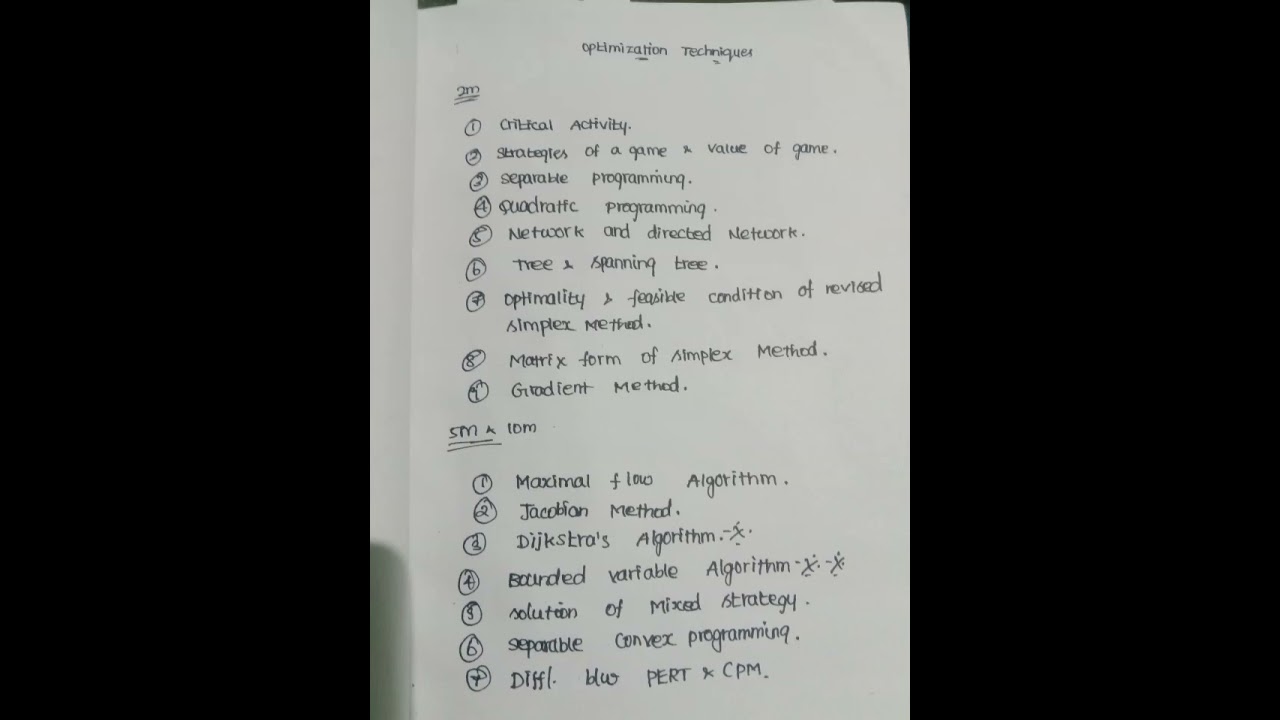 Optimization Techniques
2m
① Critical Activity.
② Strategies of a game & value of game.
③ Separable programming.
④ Quadratic programming.
⑤ Network and directed Network.
⑥ Tree & spanning tree.
⑦ Optimality & feasible condition of revised
simplex Method.
⑧ Matrix form of simplex Method.
⑨ Gradient Method.
5m & 10m
① Maximal flow Algorithm.
② Jacobian Method.
③ Dijkstra's Algorithm.-※.
④ Bounded variable Algorithm-※.-※
⑤ solution of Mixed strategy.
⑥ separable convex programming.
⑦ Diff. b/w PERT & CPM.